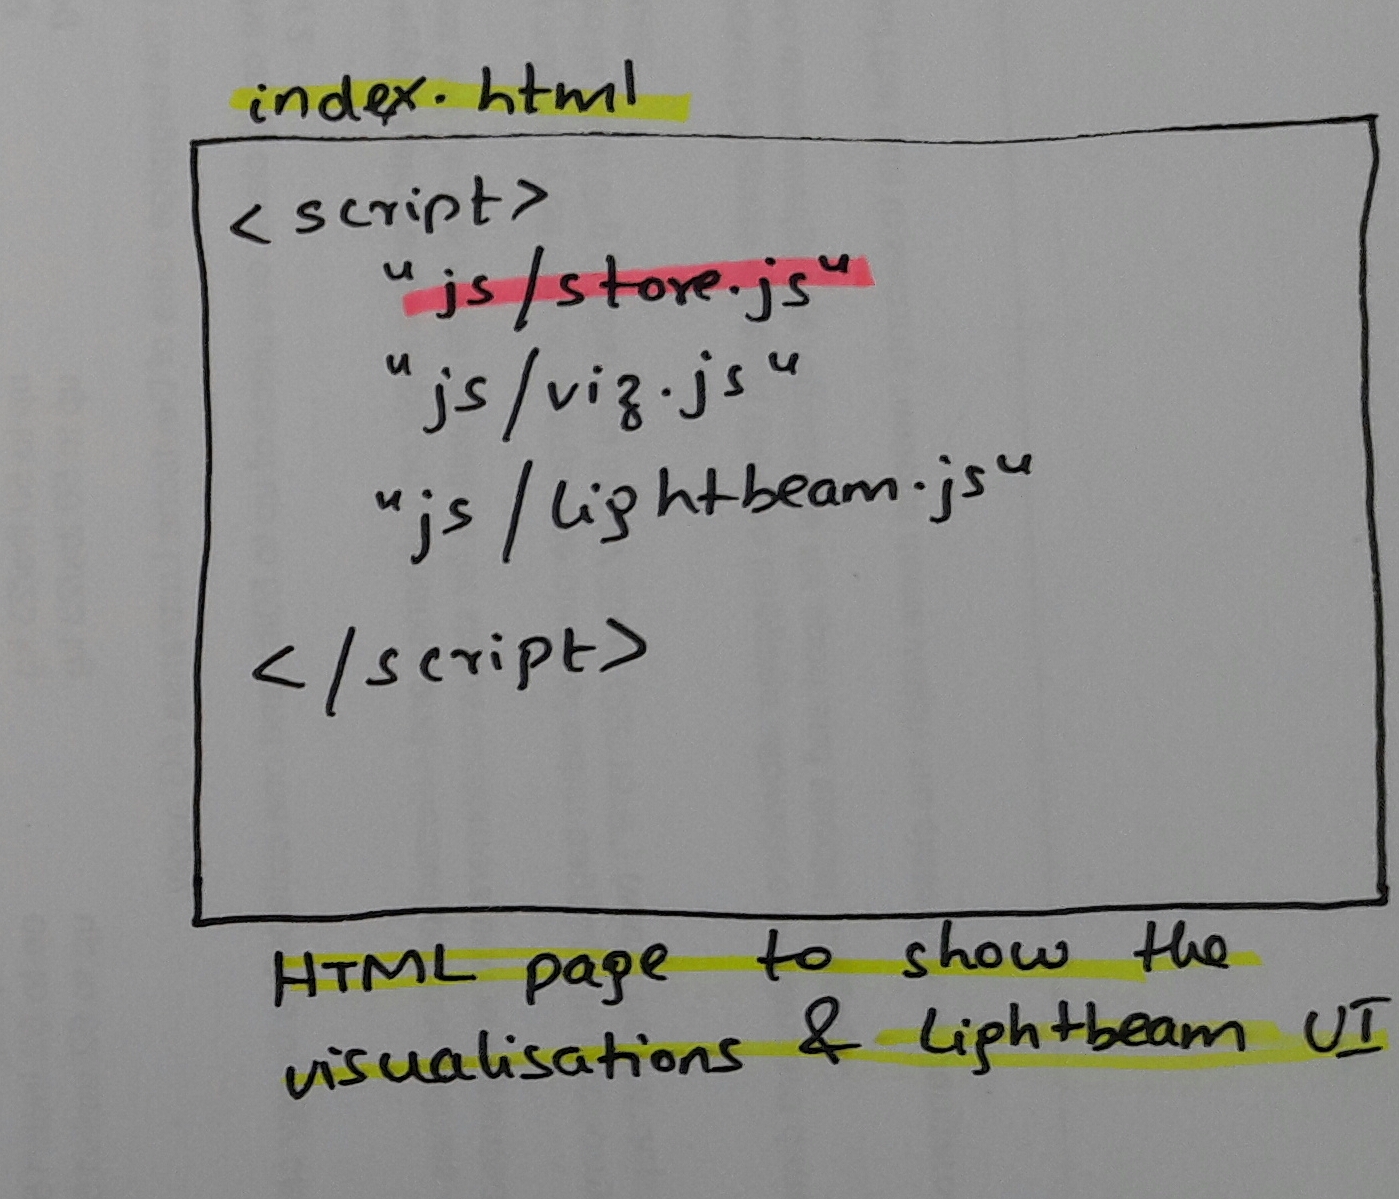 index.html
<script>
"js/store.js"
"js/viz.js"
"js/lightbeam.js"
</script>
HTML page to show the
visualisations & Lightbeam UI